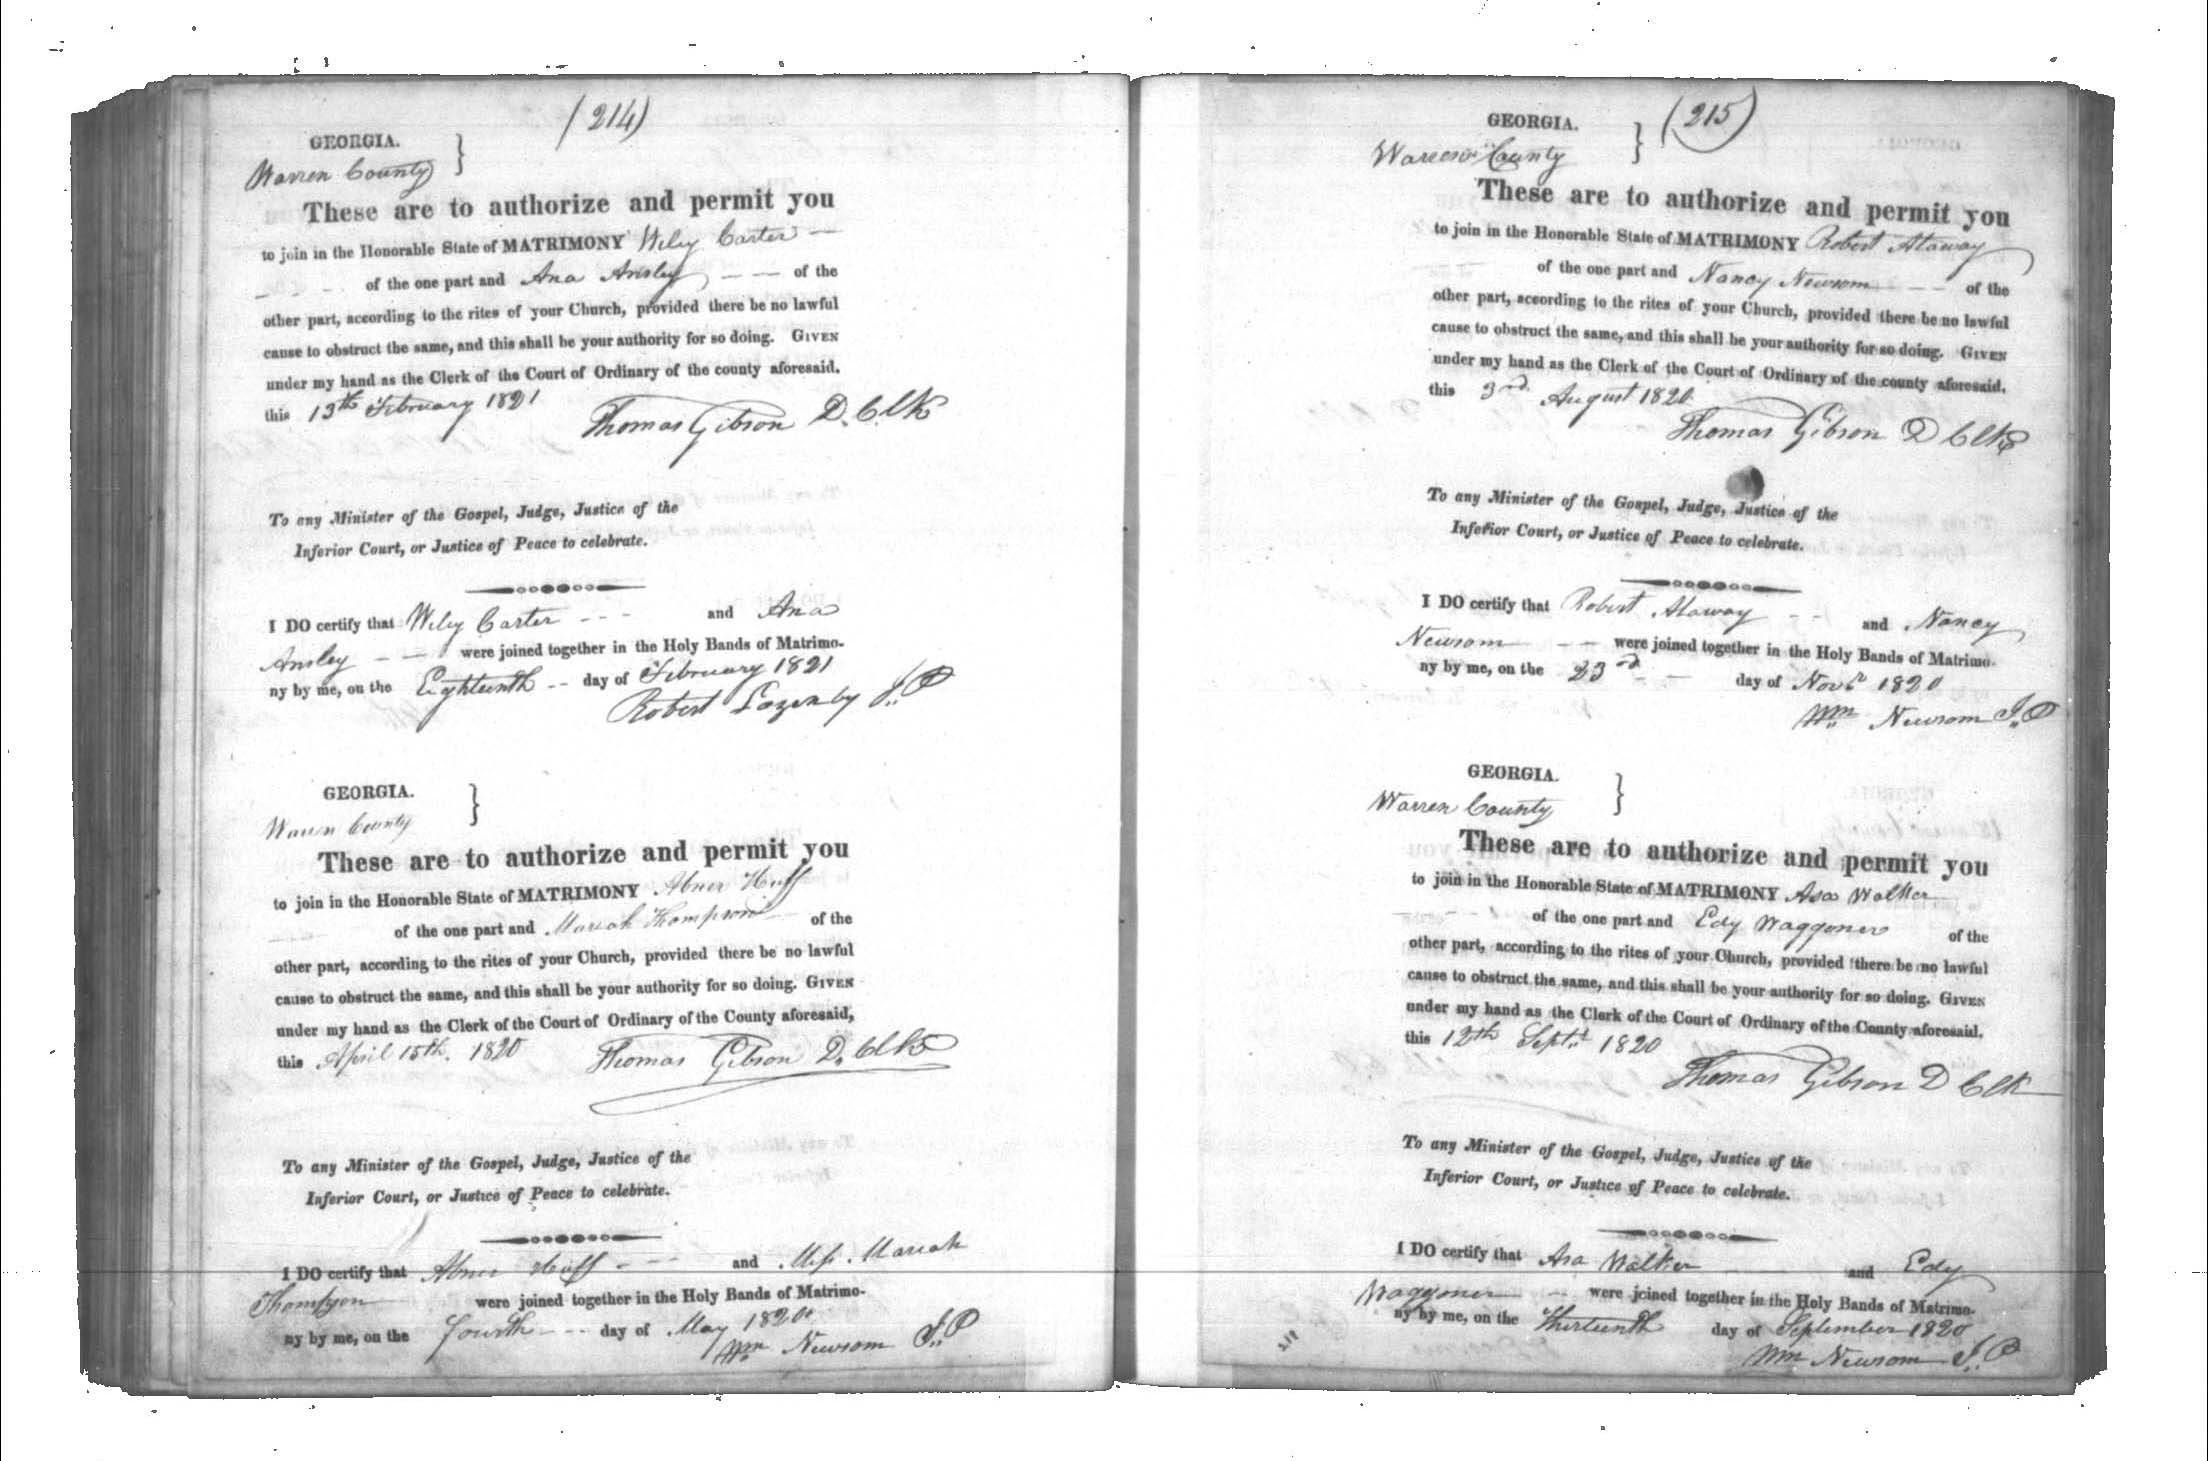 (214)
GEORGIA. }
Warren County
These are to authorize and permit you
to join in the Honorable State of MATRIMONY Wiley Carter —
— — - of the one part and Ana Ansley — — of the
other part, according to the rites of your Church, provided there be no lawful
cause to obstruct the same, and this shall be your authority for so doing. GIVEN
under my hand as the Clerk of the Court of Ordinary of the county aforesaid,
this 13th February 1821
Thomas Gibson D. Clk
To any Minister of the Gospel, Judge, Justice of the
Inferior Court, or Justice of Peace to celebrate.
I DO certify that Wiley Carter - - - and Ana
Ansley — — were joined together in the Holy Bands of Matrimo-
ny by me, on the Eighteenth -- day of February 1821
Robert Lazenby J.P
GEORGIA. }
Warren County
These are to authorize and permit you
to join in the Honorable State of MATRIMONY Abner Huff
of the one part and Mariah Thompson — of the
other part, according to the rites of your Church, provided there be no lawful
cause to obstruct the same, and this shall be your authority for so doing. GIVEN
under my hand as the Clerk of the Court of Ordinary of the County aforesaid,
this April 15th. 1820
Thomas Gibson D. Clk
To any Minister of the Gospel, Judge, Justice of the
Inferior Court, or Justice of Peace to celebrate.
I DO certify that Abner Huff - — and Miss. Mariah
Thompson were joined together in the Holy Bands of Matrimo-
ny by me, on the fourth - -- day of May 1820
Wm Newsom J.P
(215)
GEORGIA. }
Warren County
These are to authorize and permit you
to join in the Honorable State of MATRIMONY Robert Ataway
of the one part and Nancy Newsom — — of the
other part, according to the rites of your Church, provided there be no lawful
cause to obstruct the same, and this shall be your authority for so doing. GIVEN
under my hand as the Clerk of the Court of Ordinary of the county aforesaid.
this 3rd August 1820
Thomas Gibson D Clk
To any Minister of the Gospel, Judge, Justice of the
Inferior Court, or Justice of Peace to celebrate.
I DO certify that Robert Ataway - - and Nancy
Newsom — — were joined together in the Holy Bands of Matrimo-
ny by me, on the 23rd - — day of Novr 1820
Wm Newsom J.P
GEORGIA. }
Warren County
These are to authorize and permit you
to join in the Honorable State of MATRIMONY Asa Walker
of the one part and Edy Waggoner of the
other part, according to the rites of your Church, provided there be no lawful
cause to obstruct the same, and this shall be your authority for so doing. GIVEN
under my hand as the Clerk of the Court of Ordinary of the County aforesaid.
this 12th Sept. 1820
Thomas Gibson D Clk
To any Minister of the Gospel, Judge, Justice of the
Inferior Court, or Justice of Peace to celebrate.
I DO certify that Asa Walker and Edy
Waggoner — were joined together in the Holy Bands of Matrimo-
ny by me, on the Thirteenth day of September 1820
Wm Newsom J.P